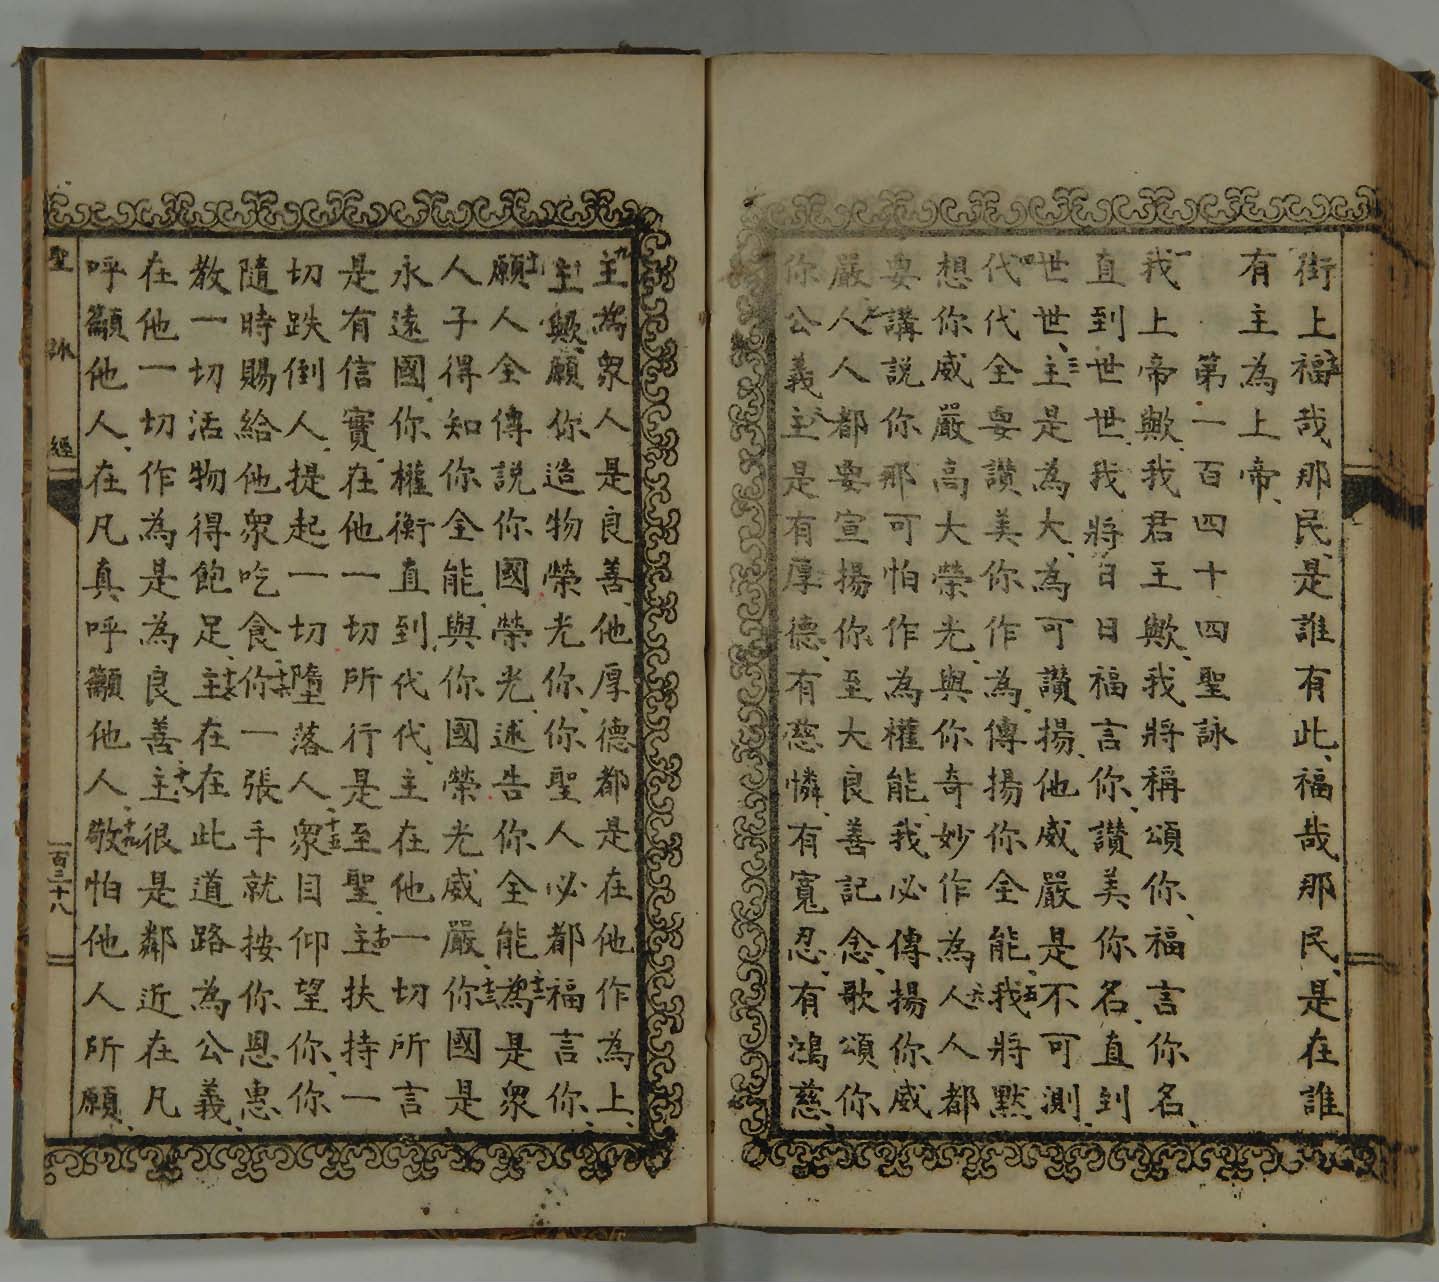 街上、十五福哉那民、是誰有此、福哉那民、是在誰
有主為上帝、
第一百四十四聖詠
一我上帝歟、我君王歟、我將稱頌你、福言你名、
直到世世、二我將日日福言你、讚美你名、直到
世世、三主是為大、為可讚揚、他威嚴是不可測、
四代代全要讚美你作為、傳揚你全能、五我將默
想你威嚴高大榮光、與你奇妙作為、六人人都
要講說你那可怕作為權能、我必傳揚你威
嚴、七人人都要宣揚你至大良善記念、歌頌你
你公義、八主是有厚德、有慈憐、有寬忍、有鴻慈、
九主為衆人是良善、他厚德都是在他作為上、
十主歟、願你造物榮光你、你聖人必都福言你、
十一願人全傳說你國榮光、述告你全能、十二為是衆
人子得知你全能、與你國榮光威嚴、十三你國是
永遠國、你權衡直到代代、主在他一切所言
是有信實、在他一切所行是至聖、十四主扶持一
切跌倒人、提起一切墮落人、十五衆目仰望你、你
隨時賜給他衆吃食、十六你一張手就按你恩惠
教一切活物得飽足、十七主在在此道路為公義、
在他一切作為是為良善、十八主很是鄰近在凡
呼籲他人、在凡真呼籲他人、十九敬怕他人所願、
聖詠經
百三十八